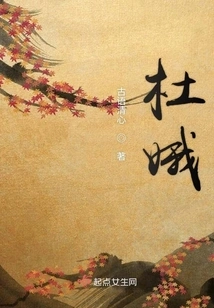 杜娥
古曹清心
著
起点女生网